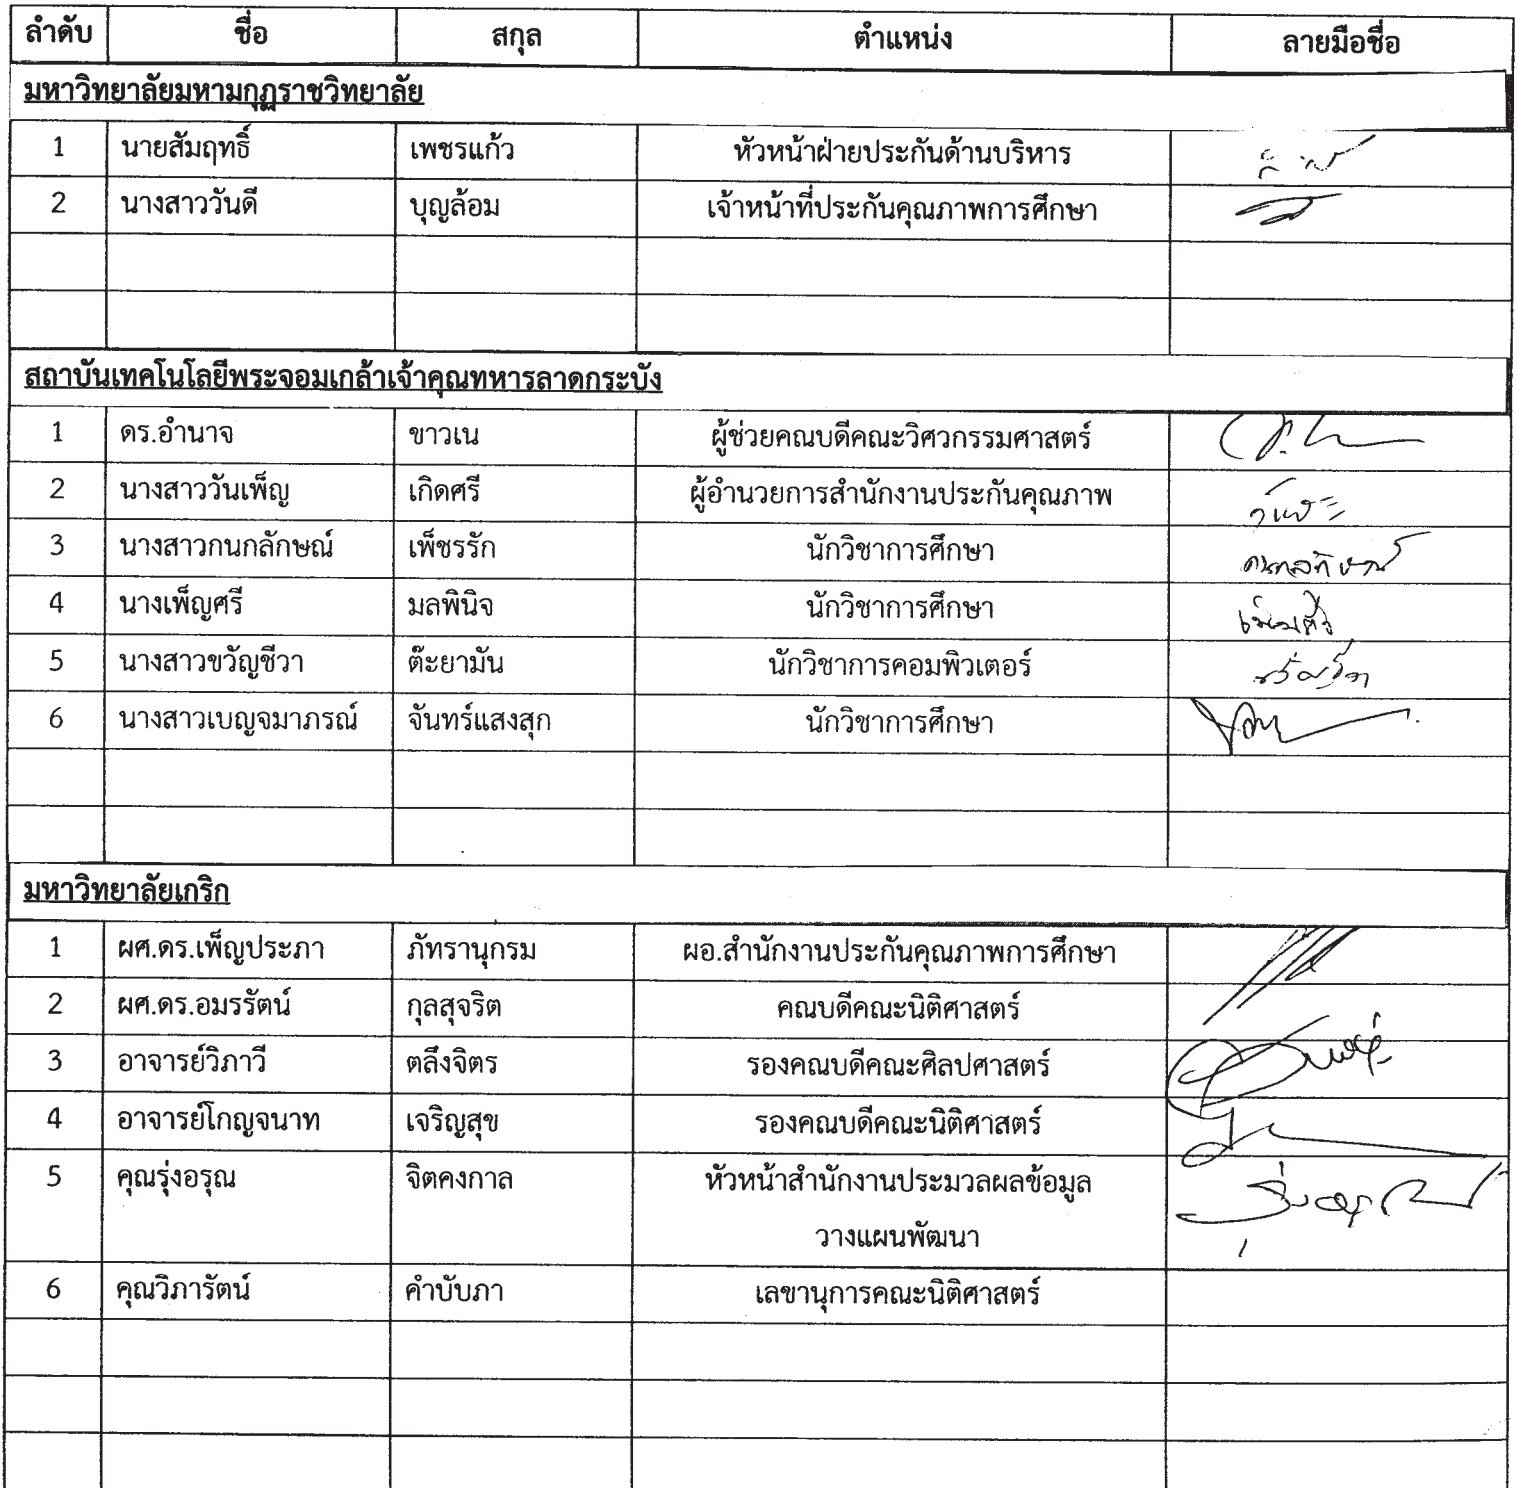 ลำดับ ชื่อ สกุล ตำแหน่ง ลายมือชื่อ
มหาวิทยาลัยมหามกุฏราชวิทยาลัย
1 นายสัมฤทธิ์ เพชรแก้ว หัวหน้าฝ่ายประกันด้านบริหาร
2 นางสาววันดี บุญล้อม เจ้าหน้าที่ประกันคุณภาพการศึกษา
สถาบันเทคโนโลยีพระจอมเกล้าเจ้าคุณทหารลาดกระบัง
1 ดร.อำนาจ ขาวเน ผู้ช่วยคณบดีคณะวิศวกรรมศาสตร์
2 นางสาววันเพ็ญ เกิดศรี ผู้อำนวยการสำนักงานประกันคุณภาพ
3 นางสาวกนกลักษณ์ เพ็ชรรัก นักวิชาการศึกษา
4 นางเพ็ญศรี มลพินิจ นักวิชาการศึกษา
5 นางสาวขวัญชีวา ต๊ะยามัน นักวิชาการคอมพิวเตอร์
6 นางสาวเบญจมาภรณ์ จันทร์แสงสุก นักวิชาการศึกษา
มหาวิทยาลัยเกริก
1 ผศ.ดร.เพ็ญประภา ภัทรานุกรม ผอ.สำนักงานประกันคุณภาพการศึกษา
2 ผศ.ดร.อมรรัตน์ กุลสุจริต คณบดีคณะนิติศาสตร์
3 อาจารย์วิภาวี ตลึงจิตร รองคณบดีคณะศิลปศาสตร์
4 อาจารย์โกญจนาท เจริญสุข รองคณบดีคณะนิติศาสตร์
5 คุณรุ่งอรุณ จิตคงกาล หัวหน้าสำนักงานประมวลผลข้อมูล
วางแผนพัฒนา
6 คุณวิภารัตน์ คำบับภา เลขานุการคณะนิติศาสตร์